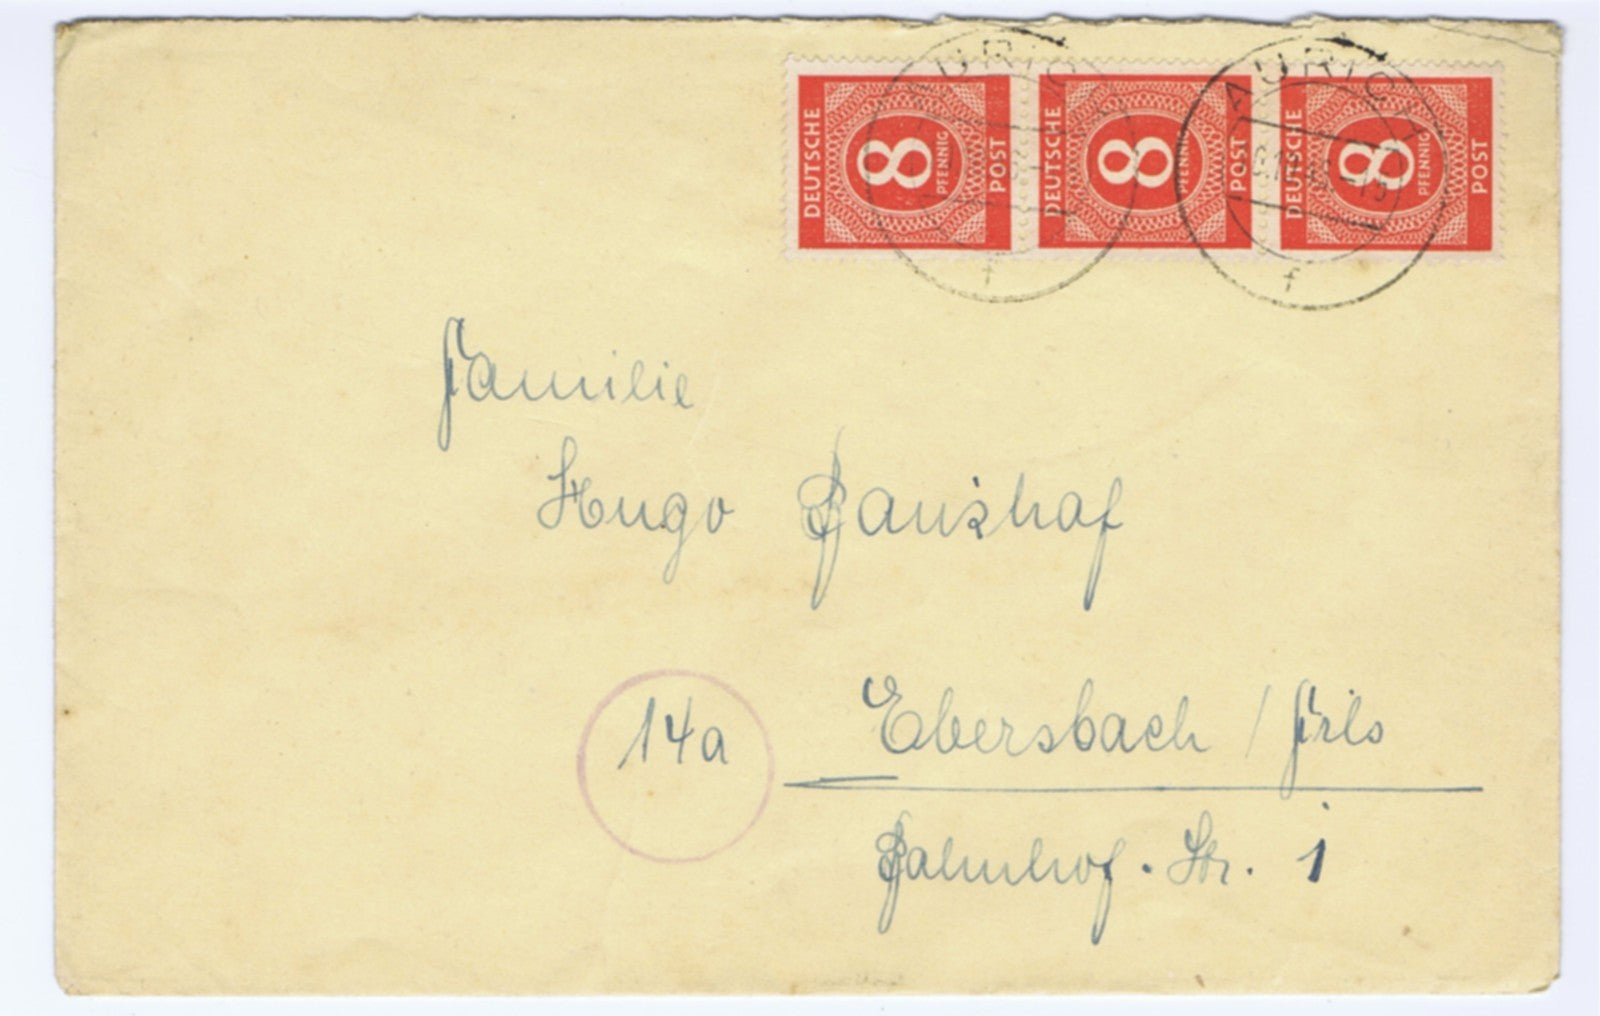 AURICH
AURICH
DEUTSCHE 8 PFENNIG POST
DEUTSCHE 8 PFENNIG POST
DEUTSCHE 8 PFENNIG POST
f
f
Familie
Hugo
14a
Ebersbach / Fils
Bahnhof. Str. 1